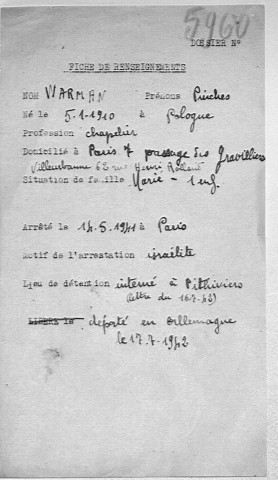 5960
DOSSIER N°
FICHE DE RENSEIGNEMENTS
NOM WARMAN Prénoms Pinches
Né le 5-1-1910 à Pologne
Profession chapelier
Domicilié à Paris 7 passage des Gravilliers
Villeurbanne 62 rue Henri Rolland
Situation de famille Marié - 1 enf.
Arrêté le 14.5.1941 à Paris
Motif de l'arrestation israélite
Lieu de détention interné à Pithiviers
(lettre du 16.7.42)
LIBERE le déporté en Allemagne
le 17.7.1942